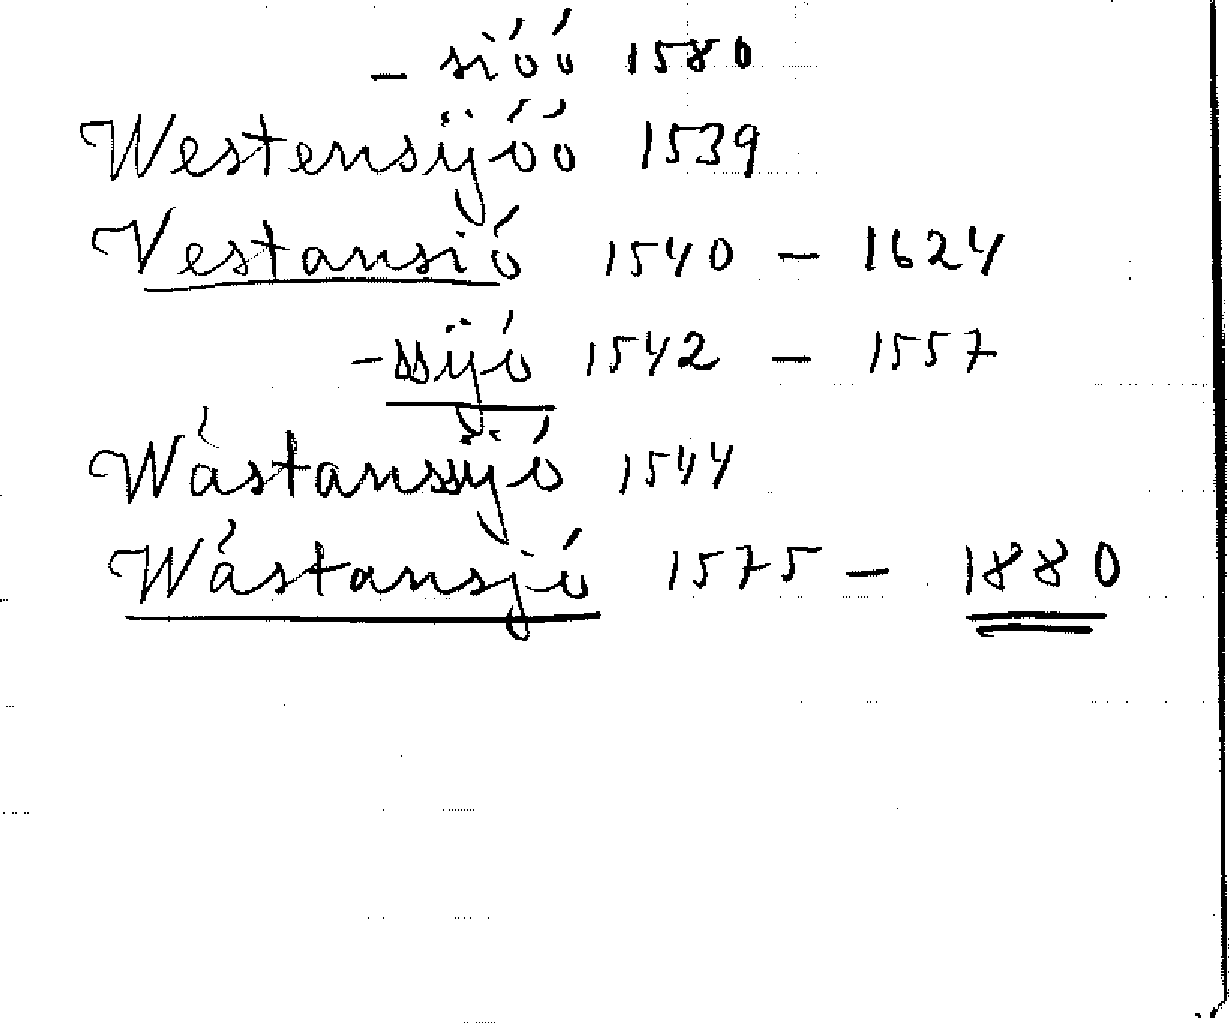 - sióó 1580
Westensÿóó 1539
Vestansió 1540 - 1624
-ssÿó 1542 - 1557
Wástanssÿó 1544
Wástansjó 1575 - 1880